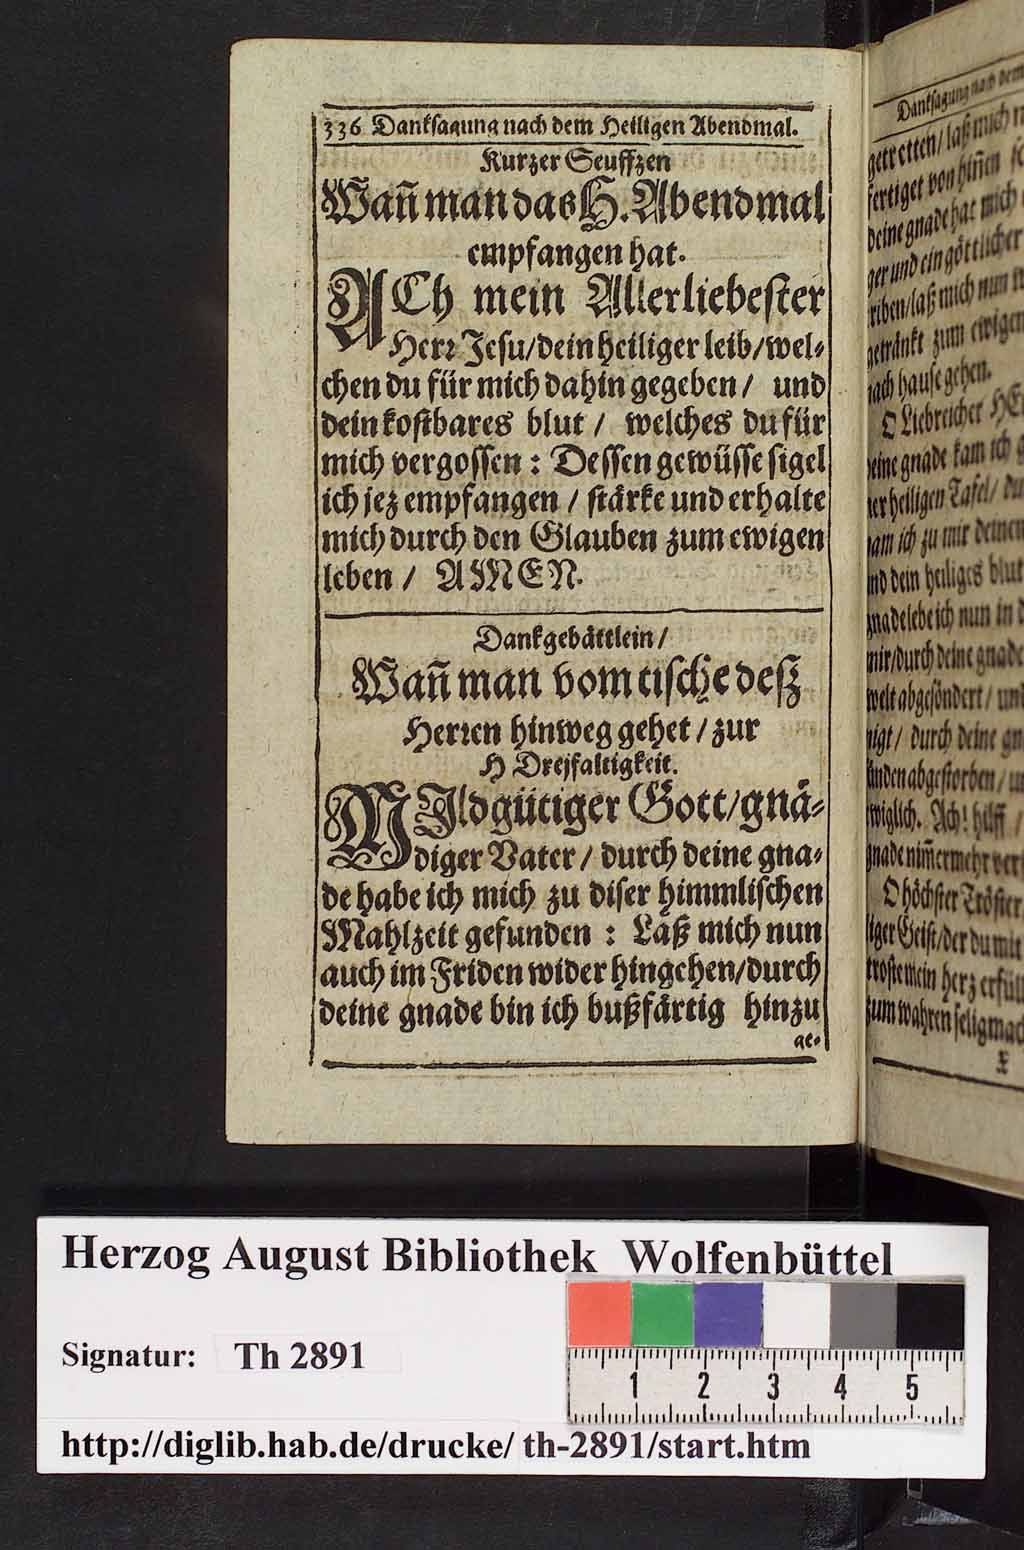 336 Danksagung nach dem Heiligen Abendmal.
Kurzer Seuffzen
Wañ man das H. Abendmal
empfangen hat.
ACh mein Allerliebester
Herr Jesu/dein heiliger leib/wel-
chen du für mich dahin gegeben/ und
dein kostbares blut / welches du für
mich vergossen : Dessen gewüsse sigel
ich jez empfangen / stärke und erhalte
mich durch den Glauben zum ewigen
leben / AMEN.
Dankgebättlein/
Wañ man vom tische deß
Herren hinweg gehet / zur
H Dreifaltigkeit.
MIldgütiger Gott/gnä-
diger Vater / durch deine gna-
de habe ich mich zu diser himmlischen
Mahlzeit gefunden : Laß mich nun
auch im Friden wider hingehen/durch
deine gnade bin ich bußfärtig hinzu
ge-
Danksagung nach dem
getretten/ laß mich
fertiget von hiñen
deine gnade hat mich
ger und ein göttlicher
riben/laß mich nun
getränkt zum ewigen
nach hause gehen.
O Liebreicher
deine gnade kam ich
der heiligen Tafel/
kam ich zu mir deinen
und dein heiliges blut
gnade lebe ich nun in
mir/durch deine gnade
welt abgesöndert/ und
nigt/ durch deine
sünden abgestorben/
ewiglich. Ach! hilff /
gnade nim̃ermehr
O höchster Tröster
liger Geist/der du mit
troste mein herz
zum wahren
X
Herzog August Bibliothek Wolfenbüttel
Signatur: Th 2891
1 2 3 4 5
http://diglib.hab.de/drucke/ th-2891/start.htm